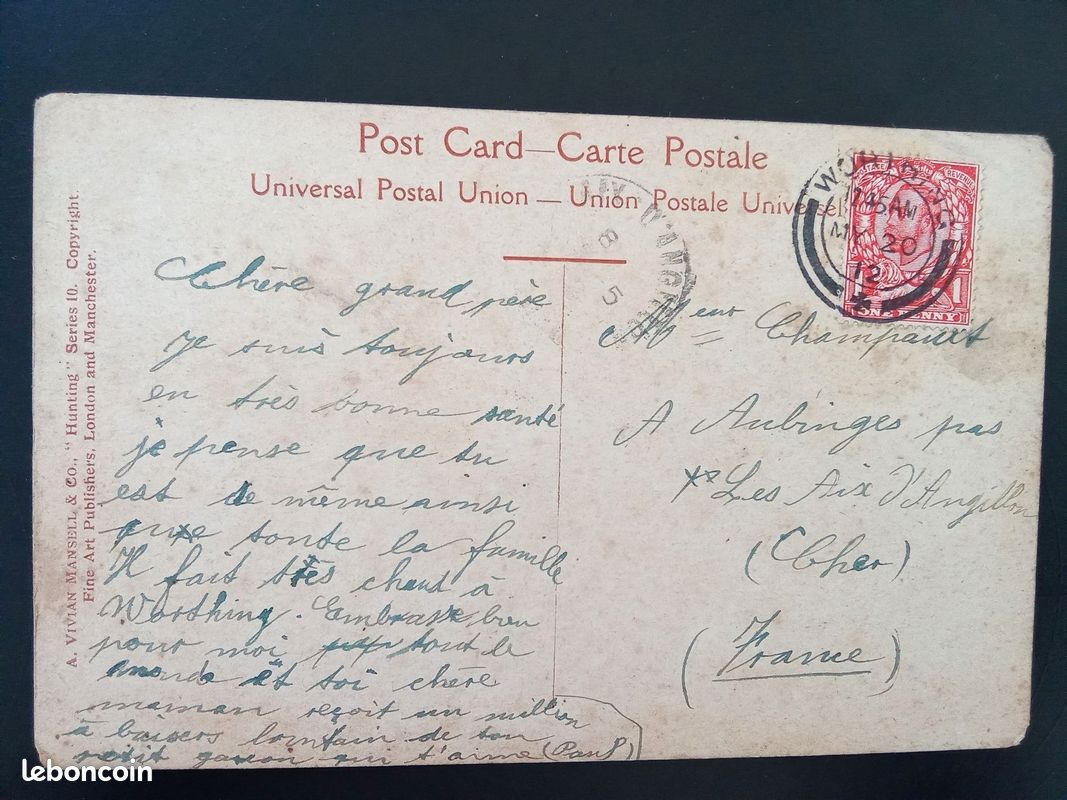 Post Card—Carte Postale
Universal Postal Union — Union Postale Universel
A. VIVIAN MANSELL & CO., "Hunting" Series 10. Copyright.
Fine Art Publishers, London and Manchester.
WORTHING
7.45 AM
MY 20
12
REVENUE
1
ONE PENNY
D'ANGI
8 5
Chère grand père
Je suis toujours
en très bonne santé
je pense que tu
est de même ainsi
que toute la famille
Il fait très chaud à
Worthing. Embrasse bien
pour moi tout le
monde et toi chère
maman reçoit un million
à baisers lointain de ton
petit garson qui t'aime (Paul)
Mr eur Champault
A Aubinges pas
Les Aix d'Angillon
(Cher)
(France)
leboncoin